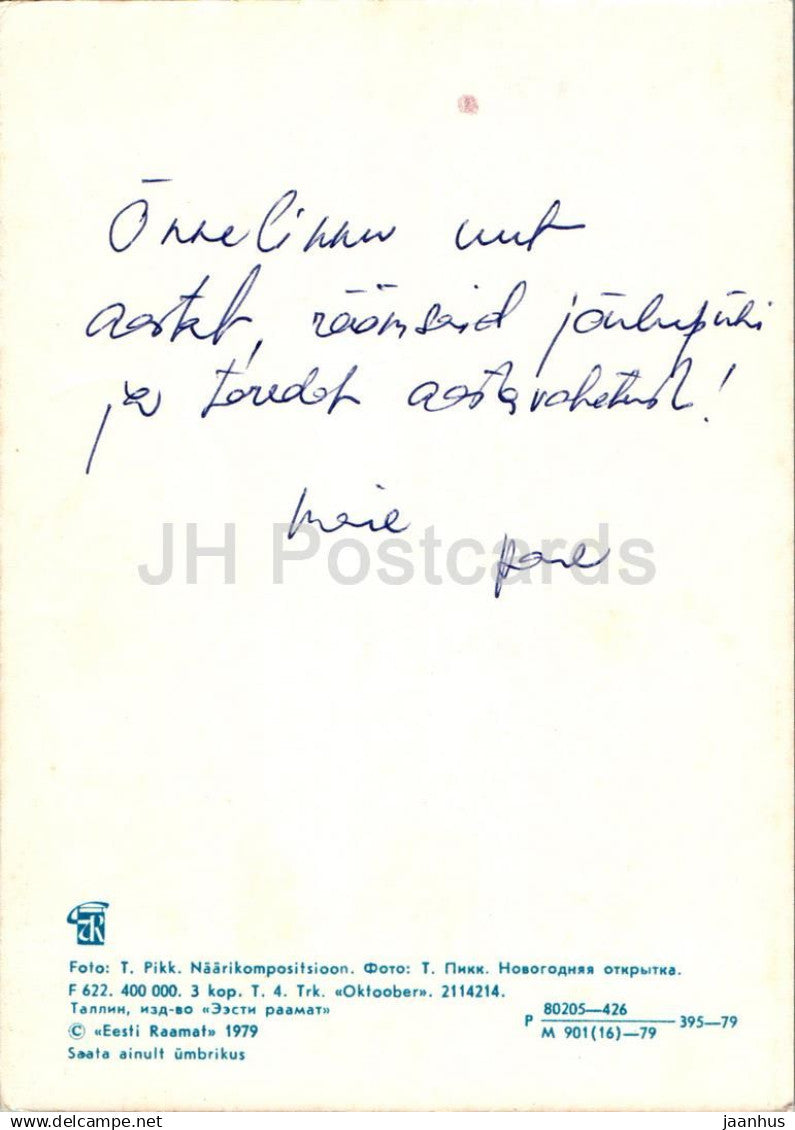 Õnnelikku uut
aastat, rõõmsaid jõulupühi
ja toredat aastavahetust!
Maie
JH Postcards
Foto: T. Pikk. Näärikompositsioon. Фото: Т. Пикк. Новогодняя открытка.
F 622. 400 000. 3 kop. T. 4. Trk. «Oktoober». 2114214.
Таллин, изд-во «Ээсти раамат»
© «Eesti Raamat» 1979
Saata ainult ümbrikus
P 80205—426
M 901(16)—79 395—79
delcampe.net
jaanhus